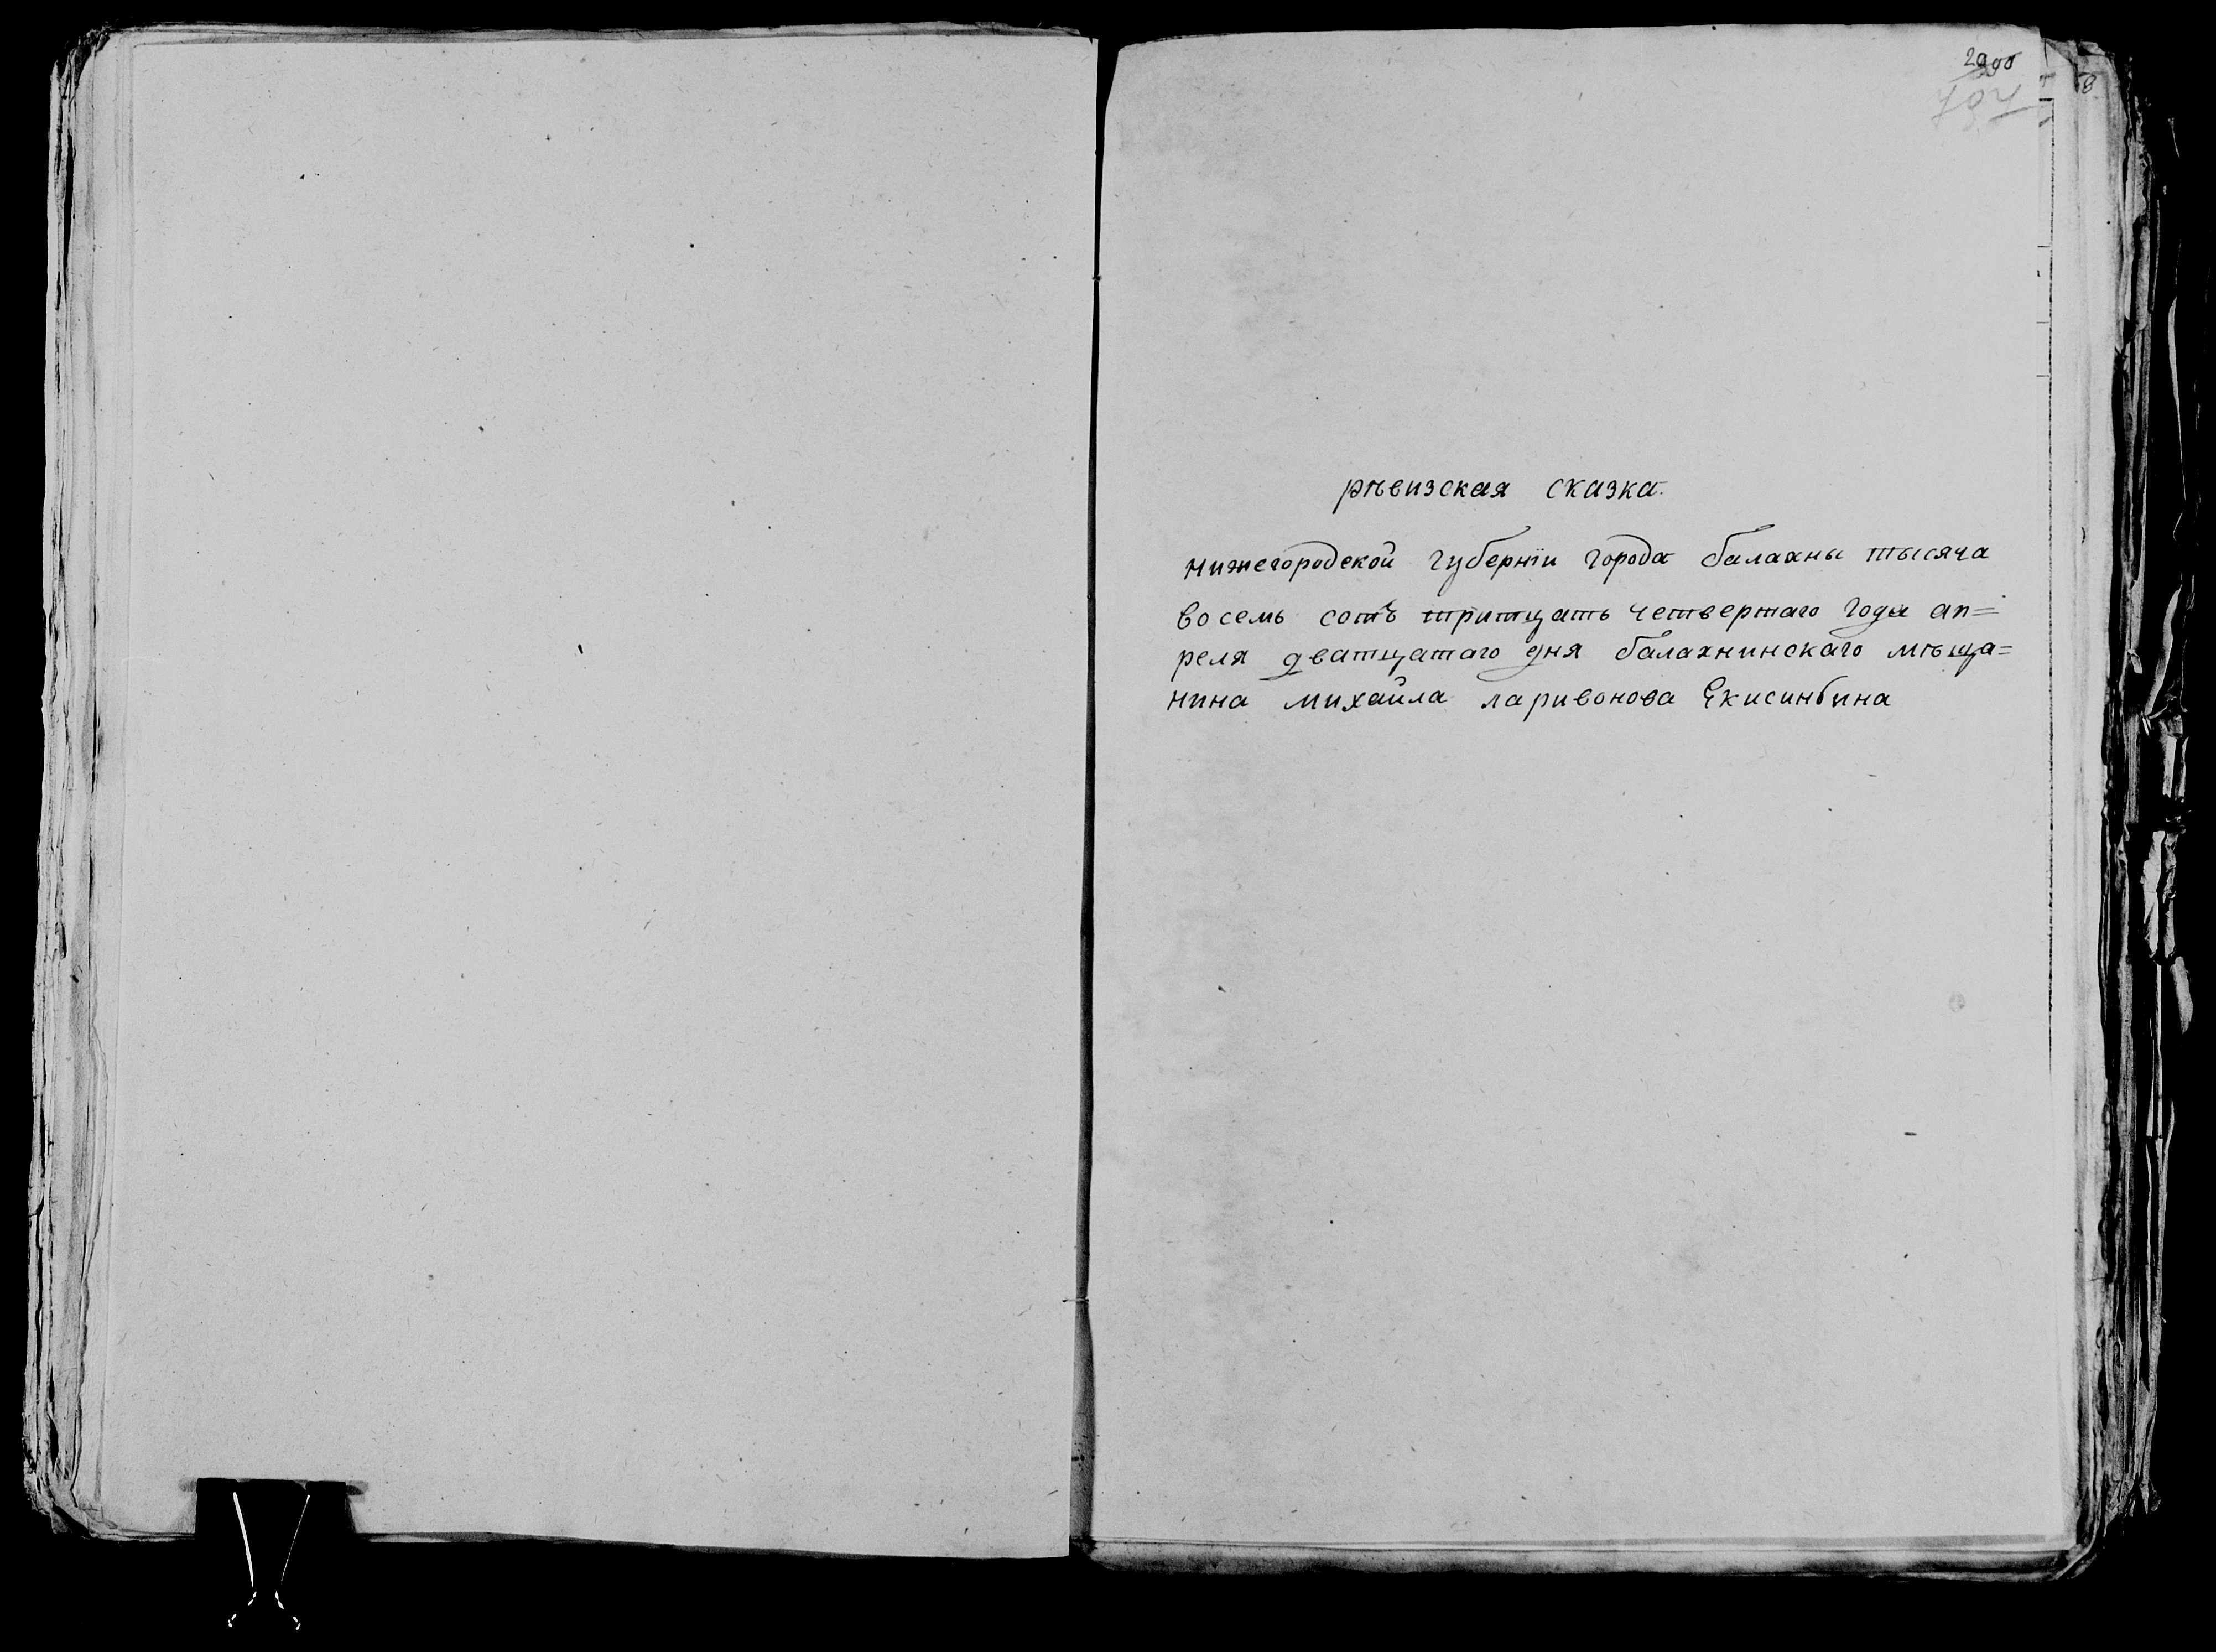 рѣвизская сказка.
нижегородской губернїи города балахны тысяча
восемь сотъ тритцать четвертаго года ап=
реля дватцатаго дня балахнинскаго мѣща=
нина михаила ларивонова